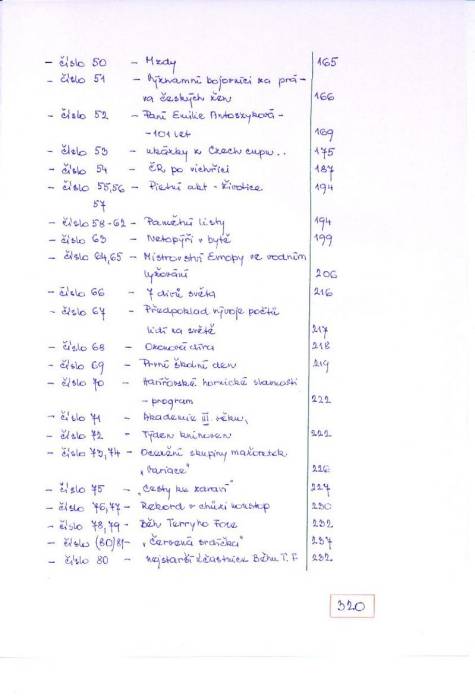 - číslo 50 - Mzdy 165
- číslo 51 - Významní bojovníci za prá-
va českých žen 166
- číslo 52 - Paní Emilie Antoszyková -
- 101 let 169
- číslo 53 - ukázky z Czech cupu.. 175
- číslo 54 - ČR po vichřici 187
- číslo 55,56 - Pietní akt - Životice 194
57
- číslo 58-62 - Pamětní listy 194
- číslo 63 - Netopýři v bytě 199
- číslo 64,65 - Mistrovství Evropy ve vodním
lyžování 206
- číslo 66 - 7 divů světa 216
- číslo 67 - Předpoklad vývoje počtu
lidí na světě 217
- číslo 68 - Ozonová díra 218
- číslo 69 - První školní den 219
- číslo 70 - Havířovské hornické slavnosti
- program 222
- číslo 71 - Akademie III. věku,
- číslo 72 - Týden knihoven 222
- číslo 73,74 - Ocenění skupiny mažoretek
"Variace" 226
- číslo 75 - "Cesty ke zdraví" 227
- číslo 76,77 - Rekord v chůzi nonstop 230
- číslo 78,79 - Běh Terryho Foxe 232
- číslo (80)81 - "Červená srdíčka" 237
- číslo 80 - nejstarší účastnice Běhu T. F 232
320